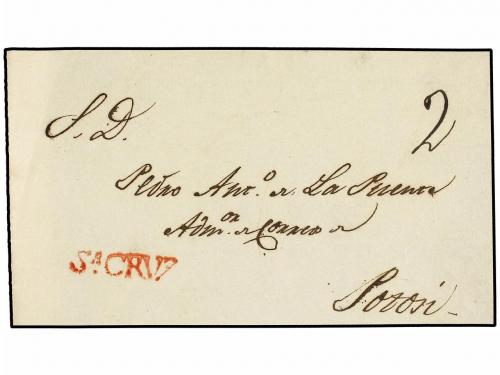 S. D.
2
Pedro Ant.º de La Puente
Adm.on de Correos de
Sª CRUZ
Potosi